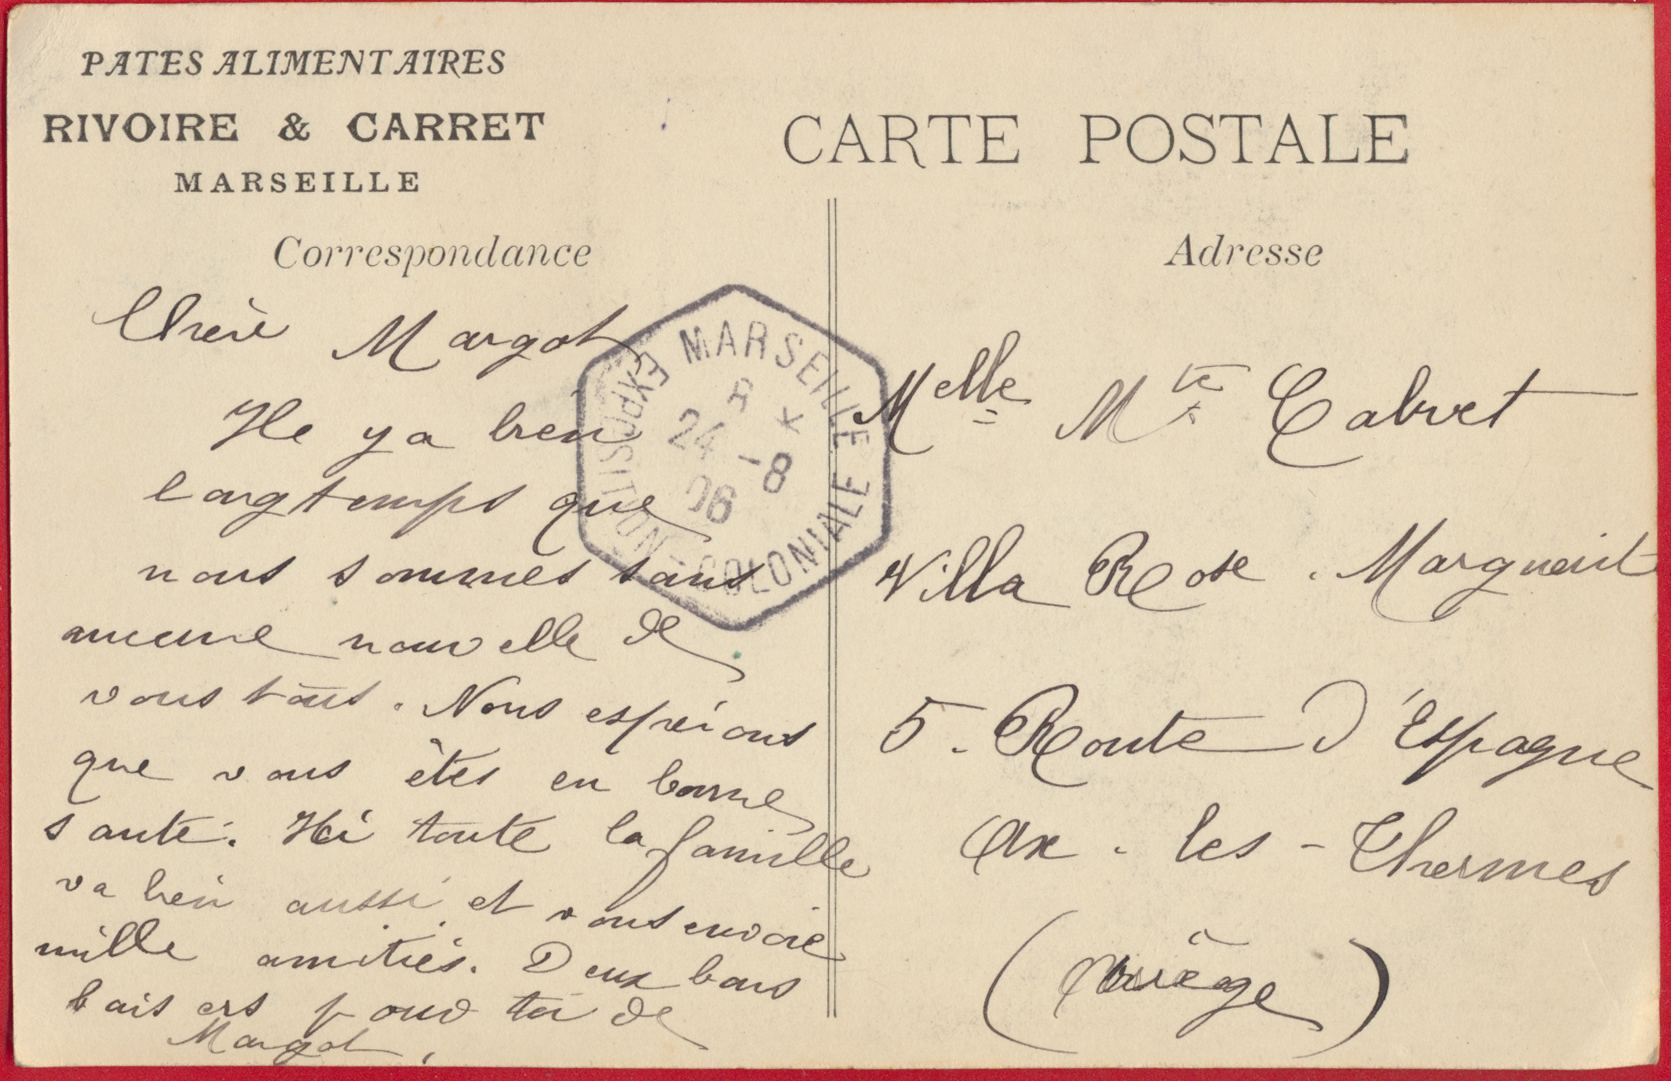 PATES ALIMENTAIRES
RIVOIRE & CARRET
MARSEILLE
CARTE POSTALE
Correspondance
Chère Margot
Il y a bien
longtemps que
nous sommes sans
aucune nouvelle de
vous tous. Nous espérons
que vous êtes en bonne
santé. Ici toute la famille
va bien aussi et vous envoie
mille amitiés. Deux bons
baisers pour toi de
Margot.
MARSEILLE
EXPOSITION - COLONIALE
24 -8
06
Adresse
Melle Mte Cabret
Villa Rose. Marguerit
5. Route d'Espagne
Ax-les-Thermes
(Ariège)